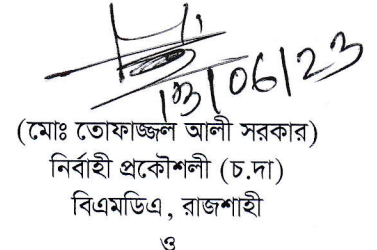 13/06/23
(মোঃ তোফাজ্জল আলী সরকার)
নির্বাহী প্রকৌশলী (চ.দা)
বিএমডিএ, রাজশাহী
ও